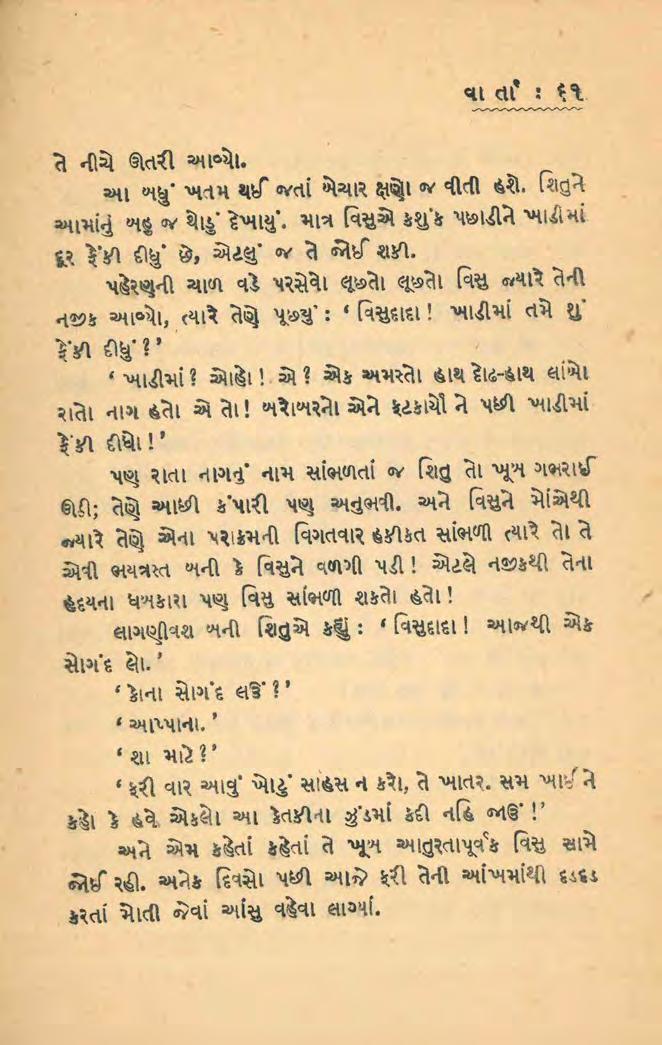 વાર્તા : ૬૧
તે નીચે ઊતરી આવ્યો.
આ બધું ખતમ થઈ જતાં બેચાર ક્ષણો જ વીતી હશે. શિતુને
આમાંનું બહુ જ થોડું દેખાયું. માત્ર વિસુએ કશુંક પછાડીને ખાડીમાં
દૂર ફેંકી દીધું છે, એટલું જ તે જોઈ શકી.
પહેરણની ચાળ વડે પરસેવો લૂછતો લૂછતો વિસુ જ્યારે તેની
નજીક આવ્યો, ત્યારે તેણે પૂછ્યું : ‘ વિસુદાદા ! ખાડીમાં તમે શું
ફેંકી દીધું ? ’
‘ ખાડીમાં ? ઓહો ! એ ? એક અમસ્તો હાથ દોઢ-હાથ લાંબો
રાતો નાગ હતો એ તો ! બરોબરનો એને ફટકાર્યો ને પછી ખાડીમાં
ફેંકી દીધો ! ’
પણ રાતા નાગનું નામ સાંભળતાં જ શિતુ તો ખૂબ ગભરાઈ
ઊઠી; તેણે આછી કંપારી પણ અનુભવી. અને વિસુને મોંએથી
જ્યારે તેણે એના પરાક્રમની વિગતવાર હકીકત સાંભળી ત્યારે તો તે
એવી ભયત્રસ્ત બની કે વિસુને વળગી પડી ! એટલે નજીકથી તેના
હૃદયના ધબકારા પણ વિસુ સાંભળી શકતો હતો !
લાગણીવશ બની શિતુએ કહ્યું : ‘ વિસુદાદા ! આજથી એક
સોગંદ લો. ’
‘ કોના સોગંદ લઉં ? ’
‘ આપ્પાના. ’
‘ શા માટે ? ’
‘ ફરી વાર આવું ખોટું સાહસ ન કરો, તે ખાતર. સમ ખાઈ ને
કહો કે હવે એકલો આ કેતકીના ઝુંડમાં કદી નહિ જાઉં ! ’
અને એમ કહેતાં કહેતાં તે ખૂબ આતુરતાપૂર્વક વિસુ સામે
જોઈ રહી. અનેક દિવસો પછી આજે ફરી તેની આંખમાંથી દડદડ
કરતાં મોતી જેવાં આંસુ વહેવા લાગ્યાં.